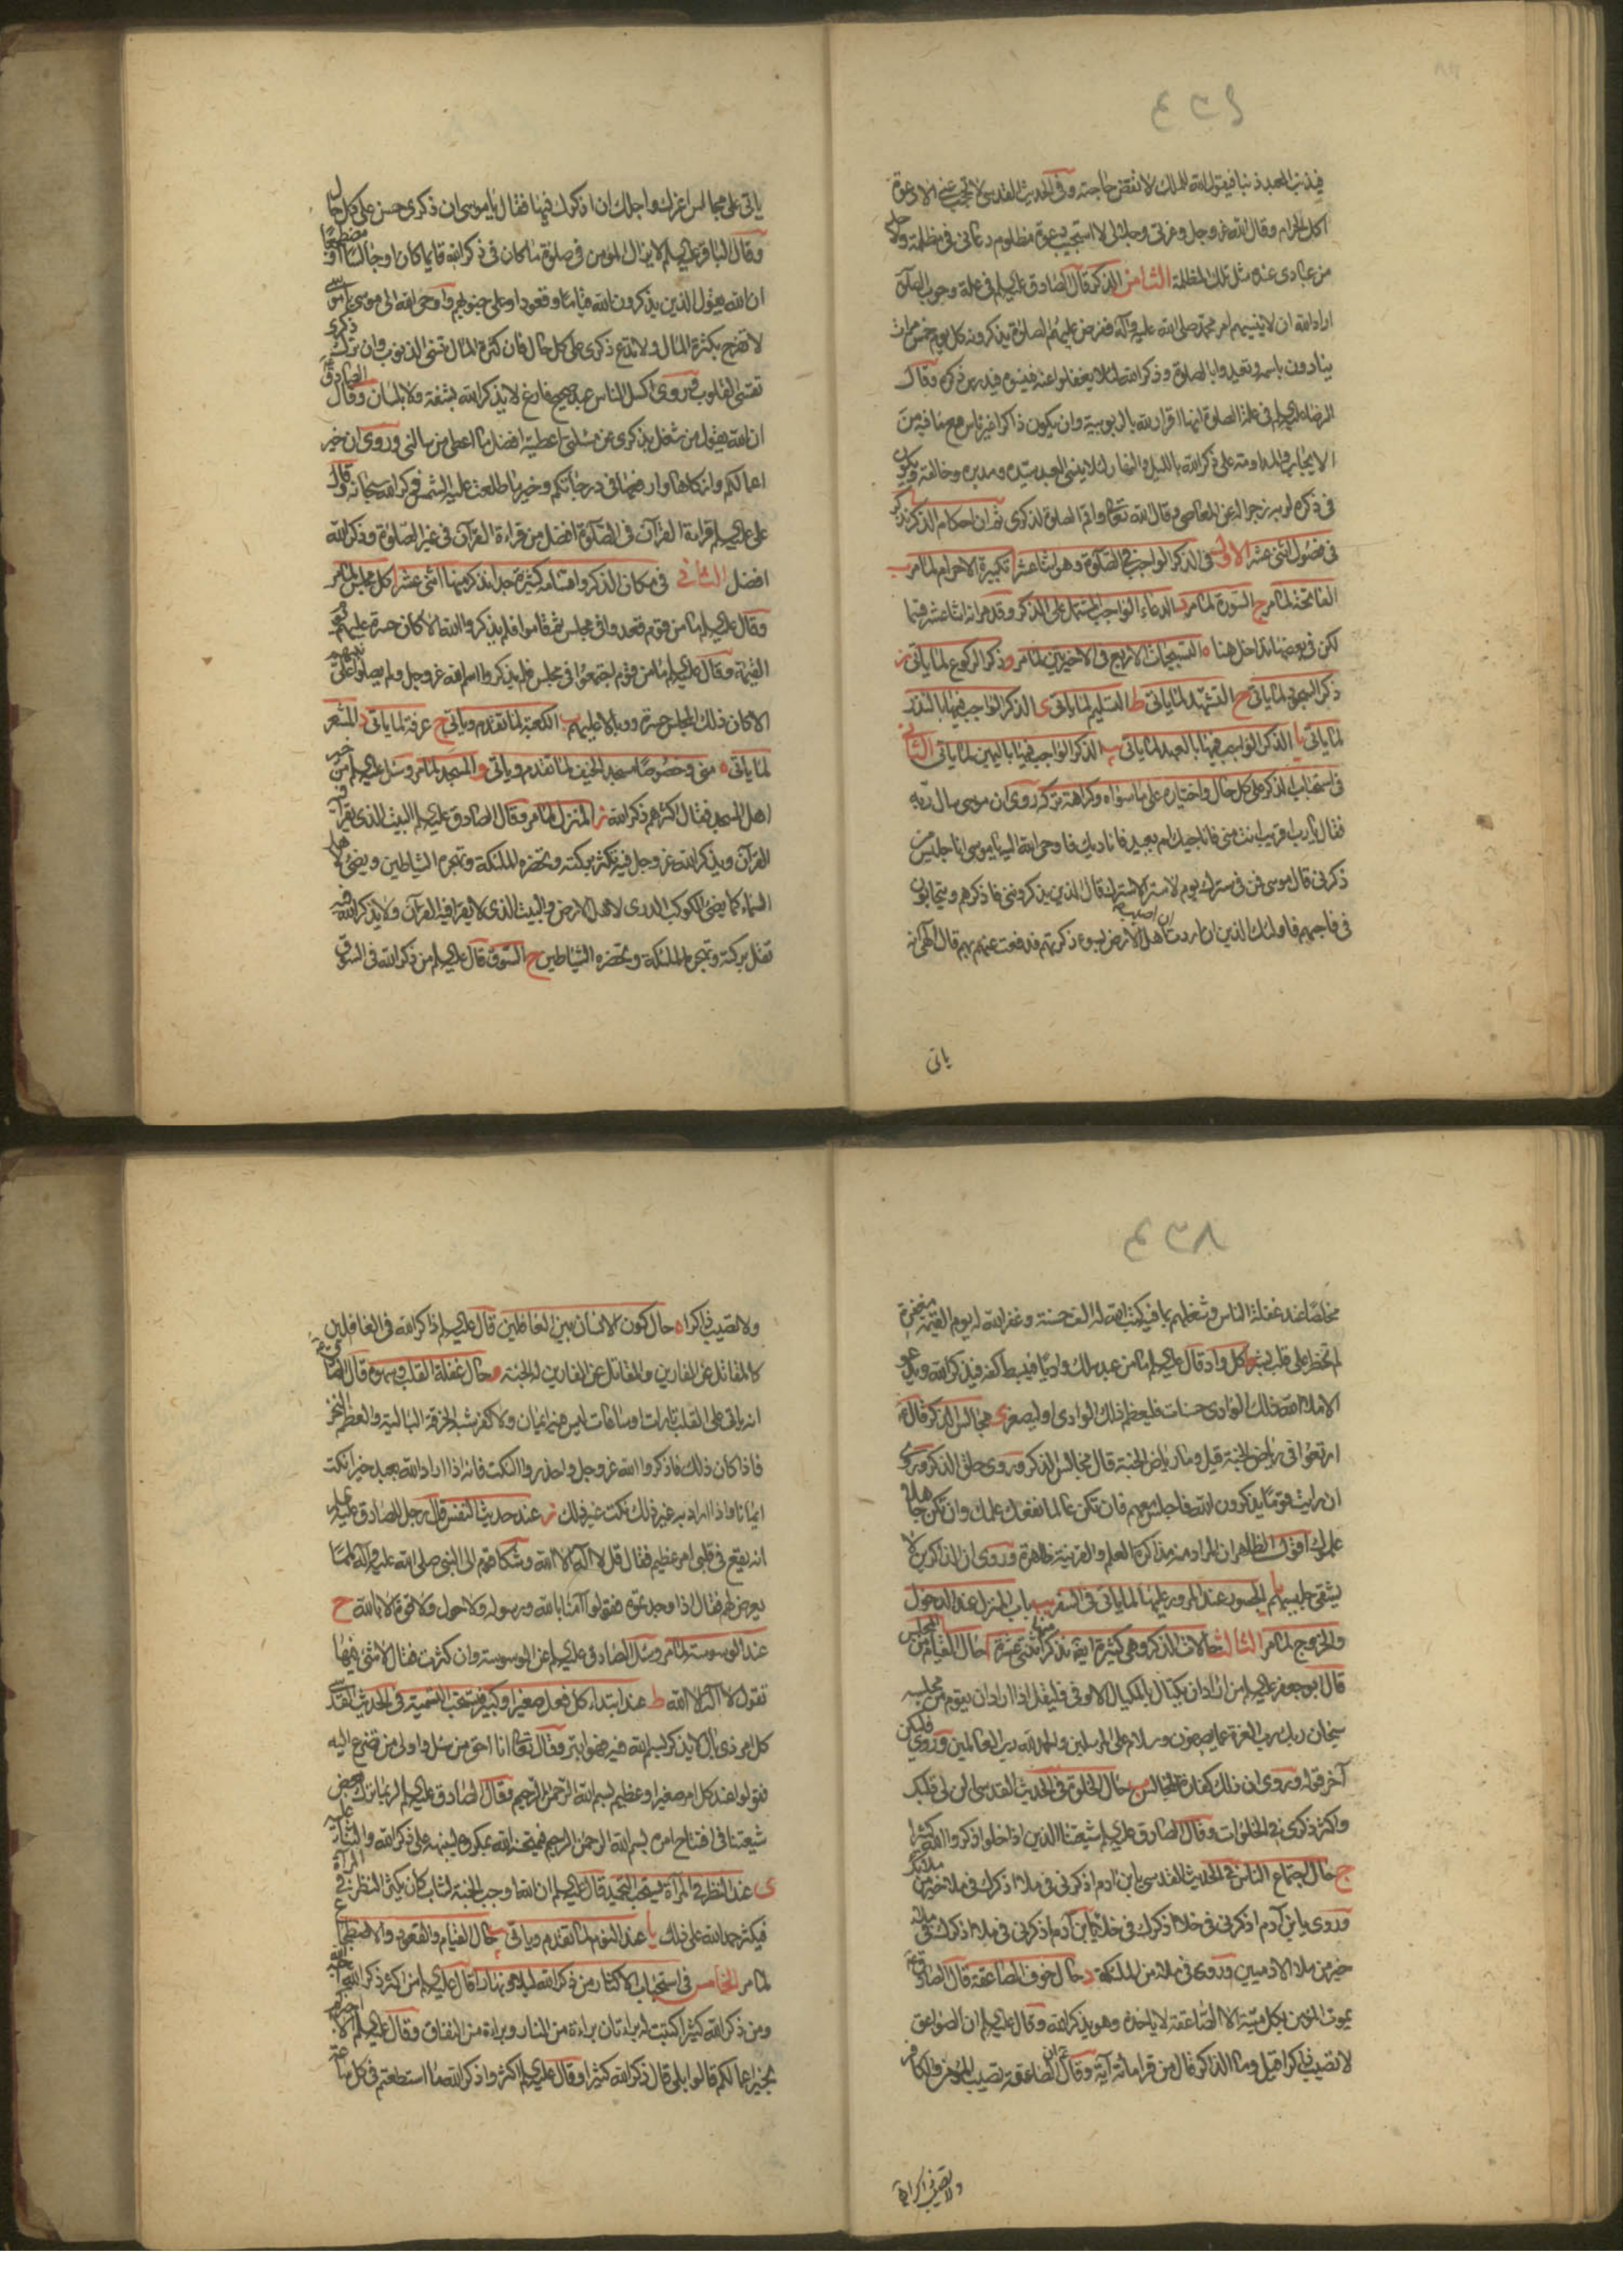 فيذنب العبد ذنبا فيقول الله للملك لا تقض حاجته وفي الحديث القدسي لا تحجب عني الا دعوة
اكل الحرام وقال الله عز وجل وعزتي وجلالي لا استجيب دعوة مظلوم دعاني في مظلمة ولاحد
من عبادي عنده مثل تلك المظلمة الثامن الذكر قال الصادق عليه السلام في علة وجوب الصلوة
اراد الله ان لا ينسيهم امر محمد صلى الله عليه وآله ففرض عليهم الصلوة يذكرونه كل يوم خمس مرات
ينادون باسمه وتعبدوا بالصلوة وذكر الله لئلا يغفلوا عنه فينسوه فيدرس ذكره وقال
الرضا عليه السلام في علة الصلوة انها اقرار لله بالربوبية وان يكون ذاكرا غير ناس مع ما فيه من
الايجاب والمداومة على ذكر الله بالليل والنهار لئلا ينسى العبد سيده ومدبره وخالقه ويكون
في ذكره لربه زجرا له عن المعاصي وقال الله تعالى واقم الصلوة لذكري ثم ان احكام الذكر تذكر
في فصول اثنى عشر الاول في الذكر الواجب في الصلوة وهو اثنا عشر ا تكبيرة الاحرام لما مر ب
الفاتحة لما مر ج السورة لما مر د الدعاء الواجب المشتمل على الذكر وقد مر انه اثنا عشر قسما
لكن في بعضها تداخل هنا ه التسبيحات الاربع في الاخيرتين لما مر و ذكر الركوع لما ياتي ز
ذكر السجود لما ياتي ح التشهد لما ياتي ط التسليم لما ياتي ى الذكر الواجب فيها بالنذر
لما ياتي يا الذكر الواجب فيها بالعهد لما ياتي يب الذكر الواجب فيها باليمين لما ياتي الثاني
في استحباب الذكر على كل حال واختياره على ما سواه وكراهة تركه روي ان موسى سال ربه
فقال يا رب اقريب انت مني فاناجيك ام بعيد فاناديك فاوحى الله اليه يا موسى انا جليس من
ذكرني قال موسى فمن في سترك يوم لا ستر الا سترك قال الذين يذكرونني فاذكرهم ويتحابون
في فاحبهم فاولئك الذين ان اردت ان اصيب اهل الارض بسوء ذكرتهم فدفعت عنهم بهم قال الهي انه
ياتي
ياتي على مجالس اعزك واجلك ان اذكرك فيها فقال يا موسى ان ذكري حسن على كل حال
وقال الباقر عليه السلام لا يزال المؤمن في صلوة ما كان في ذكر الله قايما كان او جالسا او مضطجعا
ان الله يقول الذين يذكرون الله قياما وقعودا وعلى جنوبهم واوحى الله الى موسى يا موسى
لا تفرح بكثرة المال ولا تدع ذكري على كل حال فان كثرة المال تنسي الذنوب وان ترك ذكري
تقسي القلوب وروي اكسل الناس عبد صحيح فارغ لا يذكر الله بشفة ولا بلسان وقال الصادق
ان الله يقول من شغل بذكري عن مسئلتي اعطيته افضل ما اعطي من سالني وروي ان خير
اعمالكم وازكاها وارفعها في درجاتكم وخير ما طلعت عليه الشمس ذكر الله سبحانه وقال
علي عليه السلام قراءة القرآن في الصلوة افضل من قراءة القرآن في غير الصلوة وذكر الله
افضل الثالث في مكان الذكر واقسامه كثيرة جدا نذكر منها اثنى عشر ا كل مجلس لما مر
وقال عليه السلام ما من قوم قعدوا في مجلس ثم قاموا فلم يذكروا الله الا كان حسرة عليهم يوم
القيمة وقال عليه السلام ما من قوم اجتمعوا في مجلس فلم يذكروا اسم الله عز وجل ولم يصلوا على نبيهم
الا كان ذلك المجلس حسرة ووبالا عليهم ب الكعبة لما تقدم وياتي ج عرفة لما ياتي د المشعر
لما ياتي ه منى وخصوصا مسجد الخيف لما تقدم وياتي و المسجد لما مر وسئل عليه السلام من خير
اهل المسجد فقال اكثرهم ذكرا لله ز المنزل لما مر وقال الصادق عليه السلام البيت الذي يقرأ فيه
القرآن ويذكر الله عز وجل فيه تكثر بركته وتحضره الملئكة وتهجره الشياطين ويضئ لاهل
السماء كما يضئ الكوكب الدري لاهل الارض والبيت الذي لا يقرا فيه القرآن ولا يذكر الله فيه
تقل بركته وتهجره الملئكة وتحضره الشياطين ح السوق قال عليه السلام من ذكر الله في السوق
مخلصا عند غفلة الناس وشغلهم بما فيه كتب الله له الف حسنة وغفر الله له يوم القيمة مغفرة
لم تخطر على قلب بشر ط كل واد قال عليه السلام ما من عبد سلك واديا فيبسط كفه فيذكر الله ويدعو
الا ملأ الله ذلك الوادي حسنات فليعظم ذلك الوادي او ليصغر ى مجالس الذكر قال
ارتعوا في رياض الجنة قيل وما رياض الجنة قال مجالس الذكر وروي حلق الذكر وروي
ان رايت قوما يذكرون الله فاجلس معهم فان تكن عالما نفعك علمك وان تكن جاهلا
علموك اقول الظاهر ان المراد منه مذاكرة العلم والقرينة ظاهرة وروي ان الذاكرين لا
يشقى جليسهم يا الجسور عند المرور عليها لما ياتي في السفر يب باب المنزل عند الدخول
والخروج لما مر الثالث حالات الذكر وهي كثيرة ايضا نذكر منها اثنى عشرة ا حال القيام من المجلس
قال ابو جعفر عليه السلام من اراد ان يكتال بالمكيال الاوفى فليقل اذا اراد ان يقوم من مجلسه
سبحان ربك رب العزة عما يصفون وسلام على المرسلين والحمد لله رب العالمين وروي فليكن
آخر قوله وروي ان ذلك كفارة المجالس ب حال الخلوة في الحديث القدسي الن لي قلبك
واكثر ذكري في الخلوات وقال الصادق عليه السلام شيعتنا الذين اذا خلوا ذكروا الله كثيرا
ج حال اجتماع الناس في الحديث القدسي يا بن ادم اذكرني في ملاء اذكرك في ملاء خير من ملائك
وروي يا بن آدم اذكرني في خلاء اذكرك في خلاء يا بن آدم اذكرني في ملاء اذكرك في ملاء
خير من ملاء الادميين وروي في ملاء من الملئكة د حال خوف الصاعقة قال الصادق
يموت المؤمن بكل ميتة الا الصاعقة لا ياخذه وهو يذكر الله وقال عليه السلام ان الصواعق
لا تصيب ذاكرا قيل وما الذاكر قال من قرا مائة آية وقال ان الصاعقة تصيب المؤمن والكافر
ولا تصيب ذاكرا
ولا تصيب ذاكرا ه حال كون الانسان بين الغافلين قال عليه السلام ذاكر الله في الغافلين
كالمقاتل عن الفارين والمقاتل عن الفارين له الجنة و حال غفلة القلب وسهوه قال
انه ياتي على القلب تارات وساعات ليس فيه ايمان ولا كفر شبه الخرقة البالية والعظم النخر
فاذا كان ذلك فاذكروا الله عز وجل واحذروا النكت فانه اذا اراد الله بعبد خيرا نكت
ايمانا واذا اراد به غير ذلك نكت غير ذلك ز عند حديث النفس قال رجل للصادق عليه
انه يقع في قلبي امر عظيم فقال قل لا اله الا الله وشكا قوم الى النبي صلى الله عليه وآله لمما
يعرض لهم فقال اذا وجدتموه فقولوا آمنا بالله ورسوله ولا حول ولا قوة الا بالله ح
عند الوسوسة لما مر وسئل الصادق عليه السلام عن الوسوسة وان كثرت فقال لا شئ فيها
تقول لا اله الا الله ط عند ابتداء كل فعل صغير او كبير فيستحب التسمية في الحديث القدسي
كل امر ذي بال لا يذكر بسم الله فيه فهو ابتر وقال تعالى انا احق من سئل واولى من تضرع اليه
فقولوا عند كل امر صغير او عظيم بسم الله الرحمن الرحيم وقال الصادق عليه السلام لربما ترك بعض
شيعتنا في افتتاح امره بسم الله الرحمن الرحيم فيمتحنه الله بمكروه لينبهه على ذكر الله والثناء عليه
ى عند النظر في المرآة يستحب التحميد قال عليه السلام ان الله اوجب الجنة لشاب كان يكثر النظر في المرآة
فيكثر حمد الله على ذلك يا عند النوم لما تقدم وياتي يب حال القيام والقعود والاضطجاع
لما مر الخامس في استحباب الاكثار من ذكر الله ليلا ونهارا قال عليه السلام من اكثر ذكر الله احبه الله
ومن ذكر الله كثيرا كتبت له براءتان براءة من النار وبراءة من النفاق وقال عليه السلام الا اخبركم
بخير اعمالكم قالوا بلى قال ذكر الله كثيرا وقال عليه السلام اكثروا ذكر الله ما استطعتم في كل ساعة